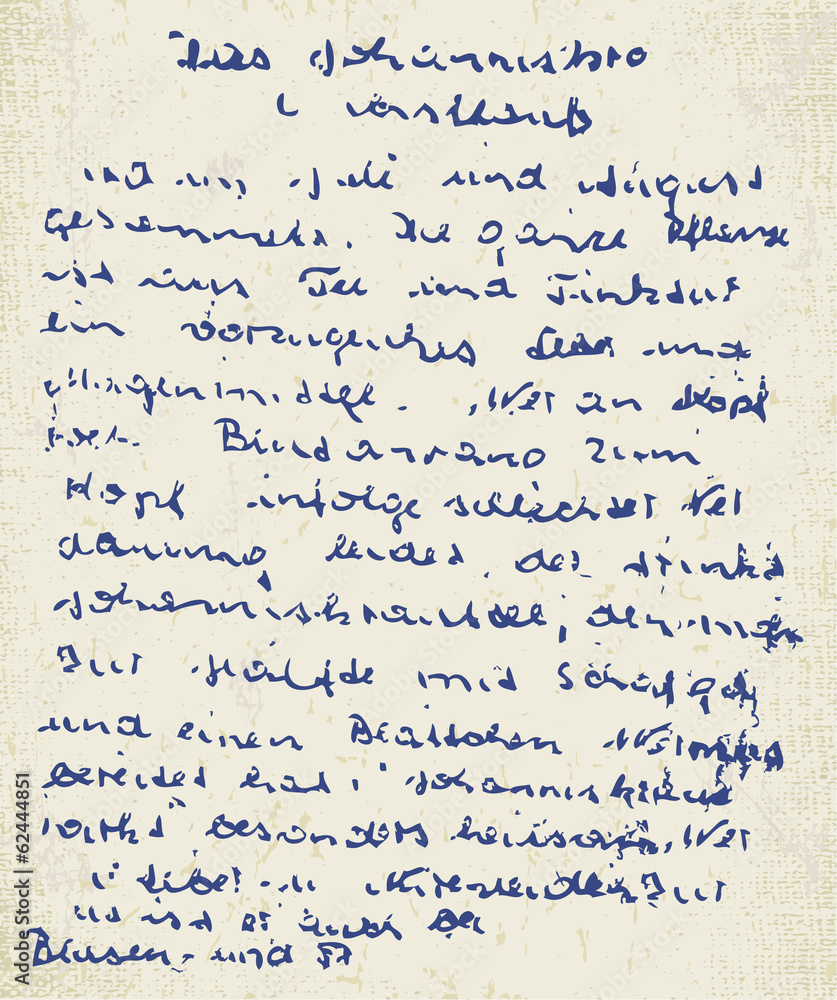 Das Johannisbro
wird im Juli und August
gesammelt. Die ganze Pflanze
ist als Tee und Tinktur
ein vorzügliches und
Magenmittel. Wer an Kopf
Blutandrang zum
Kopf infolge schlechter Ver
dauung leidet, der trinkt
Johanniskrauttee, den man
zur Hälfte mit Schafgar
und einen Wermut
bereitet hat. Johanniskraut
wirkt besonders heilsam. Wer
ist er auch bei
Blasen- und
Adobe Stock | #62444851